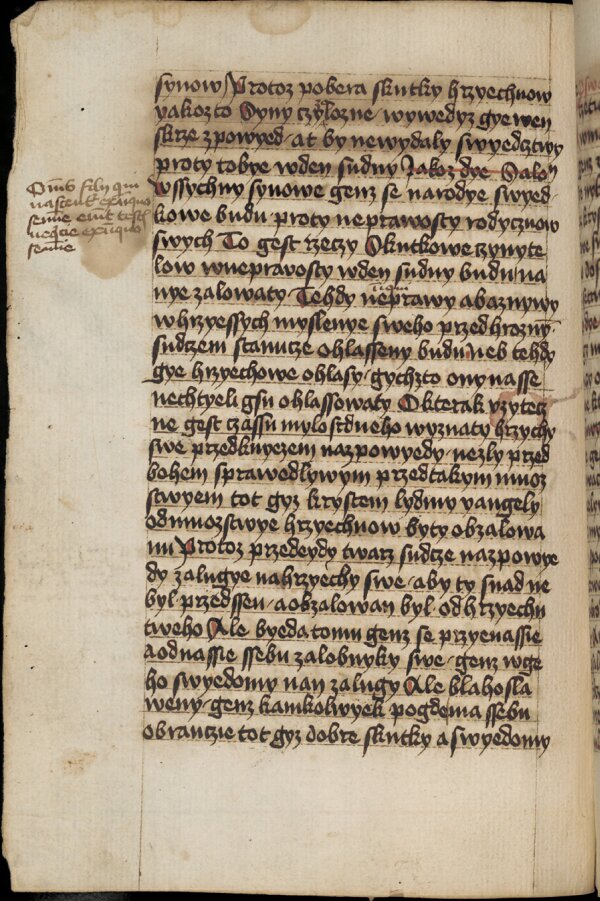 synow Protoz pobera skutky hrzyechuow
yakozto Syny czyzlozne wywedyz gye wen
skrze zpowyed at by newydaly swyedecztwy
proty tobye wden sudny Jakoz dye Salo
wssychny synowe genz se narodye swyed
kowe budu proty neprawosty rodyczuow
swych To gest rzeczy Skutkowe czynyte
low wneprawosty wden sudny budu na
nye zalowaty Tehdy neprawy abaznywy
whrzyessych myslenye sweho przed hrozny
sudczem stanucze ohlasseny budu neb tehdy
gye hrzyechowe ohlasy gychzto ony nasse
nechtyeli gsu ohlassowaty Okterak vzytecz
ne gest czassu mylostdneho wyznaty hrzychy
swe przedknyezem nazpowyedy nezly przed
bohem sprawedlywym przedtakym mnoz
stwyem tot gyz krystem lydmy yangely
odmnozstwye hrzyechuow byty obzalowa
ni Protoz przedeydy twarz sudcze nazpowye
dy zalugye nahrzyechy swe aby ty snad ne
byl przedssen aobzalowan byl od hrzyechu
tweho Ale byeda tomu genz se przyenassie
aodnassie ssebu zalobnyky swe genz wge
ho swyedomy nan zalugy Ale blahosla
weny genz kamkolwyek pogdema ssebu
obranczie tot gyz dobre skutky a swyedomy
Omnes filij qui
nascentur ex iniquo
semine erunt testes
nequicie ex iniquo
semine